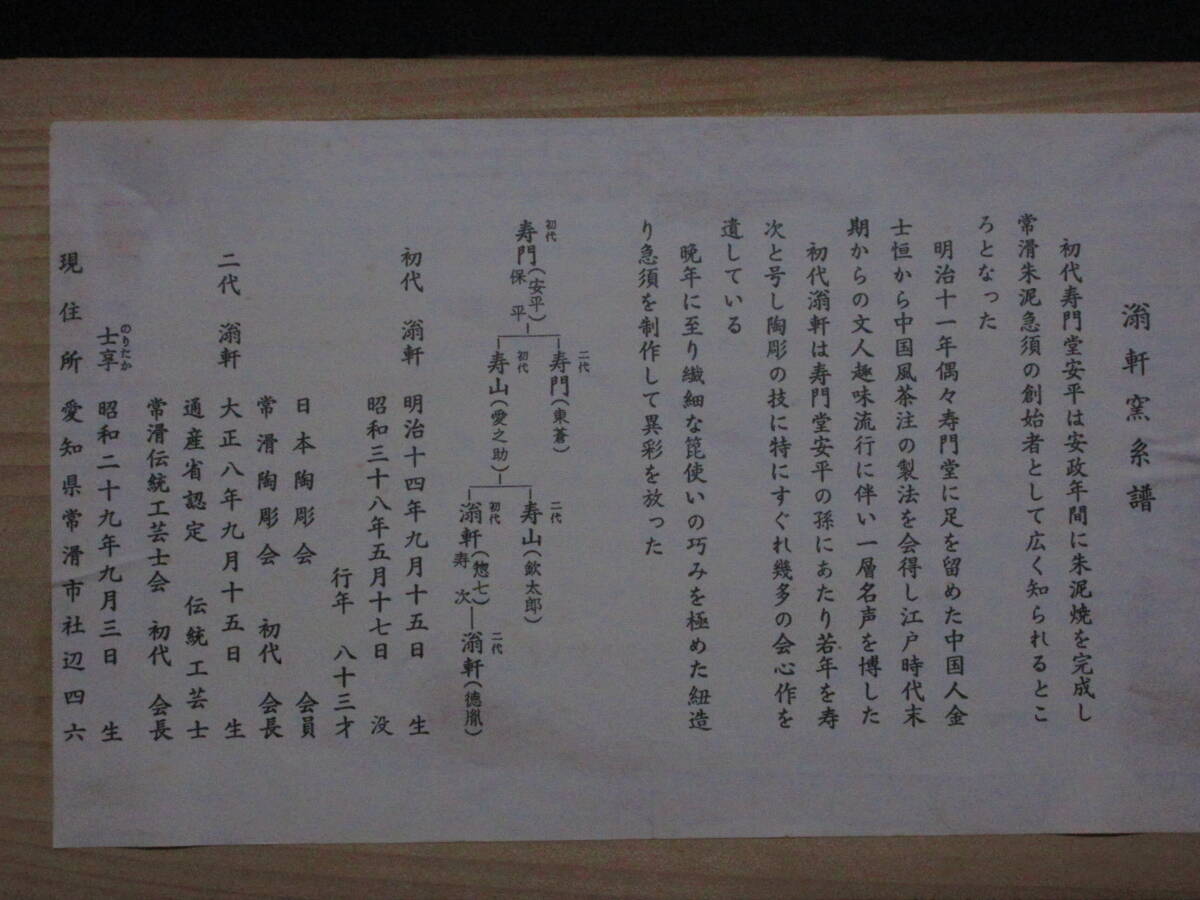 滃軒窯系譜
初代寿門堂安平は安政年間に朱泥焼を完成し
常滑朱泥急須の創始者として広く知られるとこ
ろとなった
明治十一年偶々寿門堂に足を留めた中国人金
士恒から中国風茶注の製法を会得し江戸時代末
期からの文人趣味流行に伴い一層名声を博した
初代滃軒は寿門堂安平の孫にあたり若年を寿
次と号し陶彫の技に特にすぐれ幾多の会心作を
遺している
晩年に至り繊細な箆使いの巧みを極めた紐造
り急須を制作して異彩を放った
初代 寿門(安平) 保平
二代 寿門(東蒼)
初代 寿山(愛之助)
二代 寿山(欽太郎)
初代 滃軒(惣七) 寿次
二代 滃軒(徳胤)
初代 滃軒 明治十四年九月十五日 生
昭和三十八年五月十七日 没
行年 八十三才
日本陶彫会 会員
常滑陶彫会 初代 会長
二代 滃軒 大正八年九月十五日 生
通産省認定 伝統工芸士
常滑伝統工芸士会 初代 会長
士享 のりたか 昭和二十九年九月三日 生
現住所 愛知県常滑市社辺四六